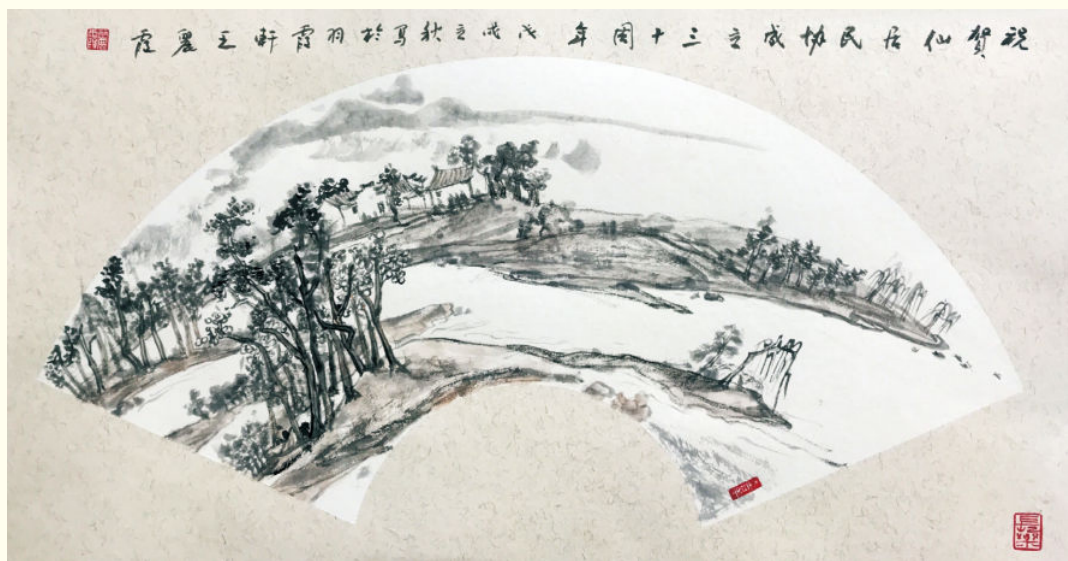 祝贺仙居民协成立三十周年戊戌立秋写于羽霞轩王丽霞